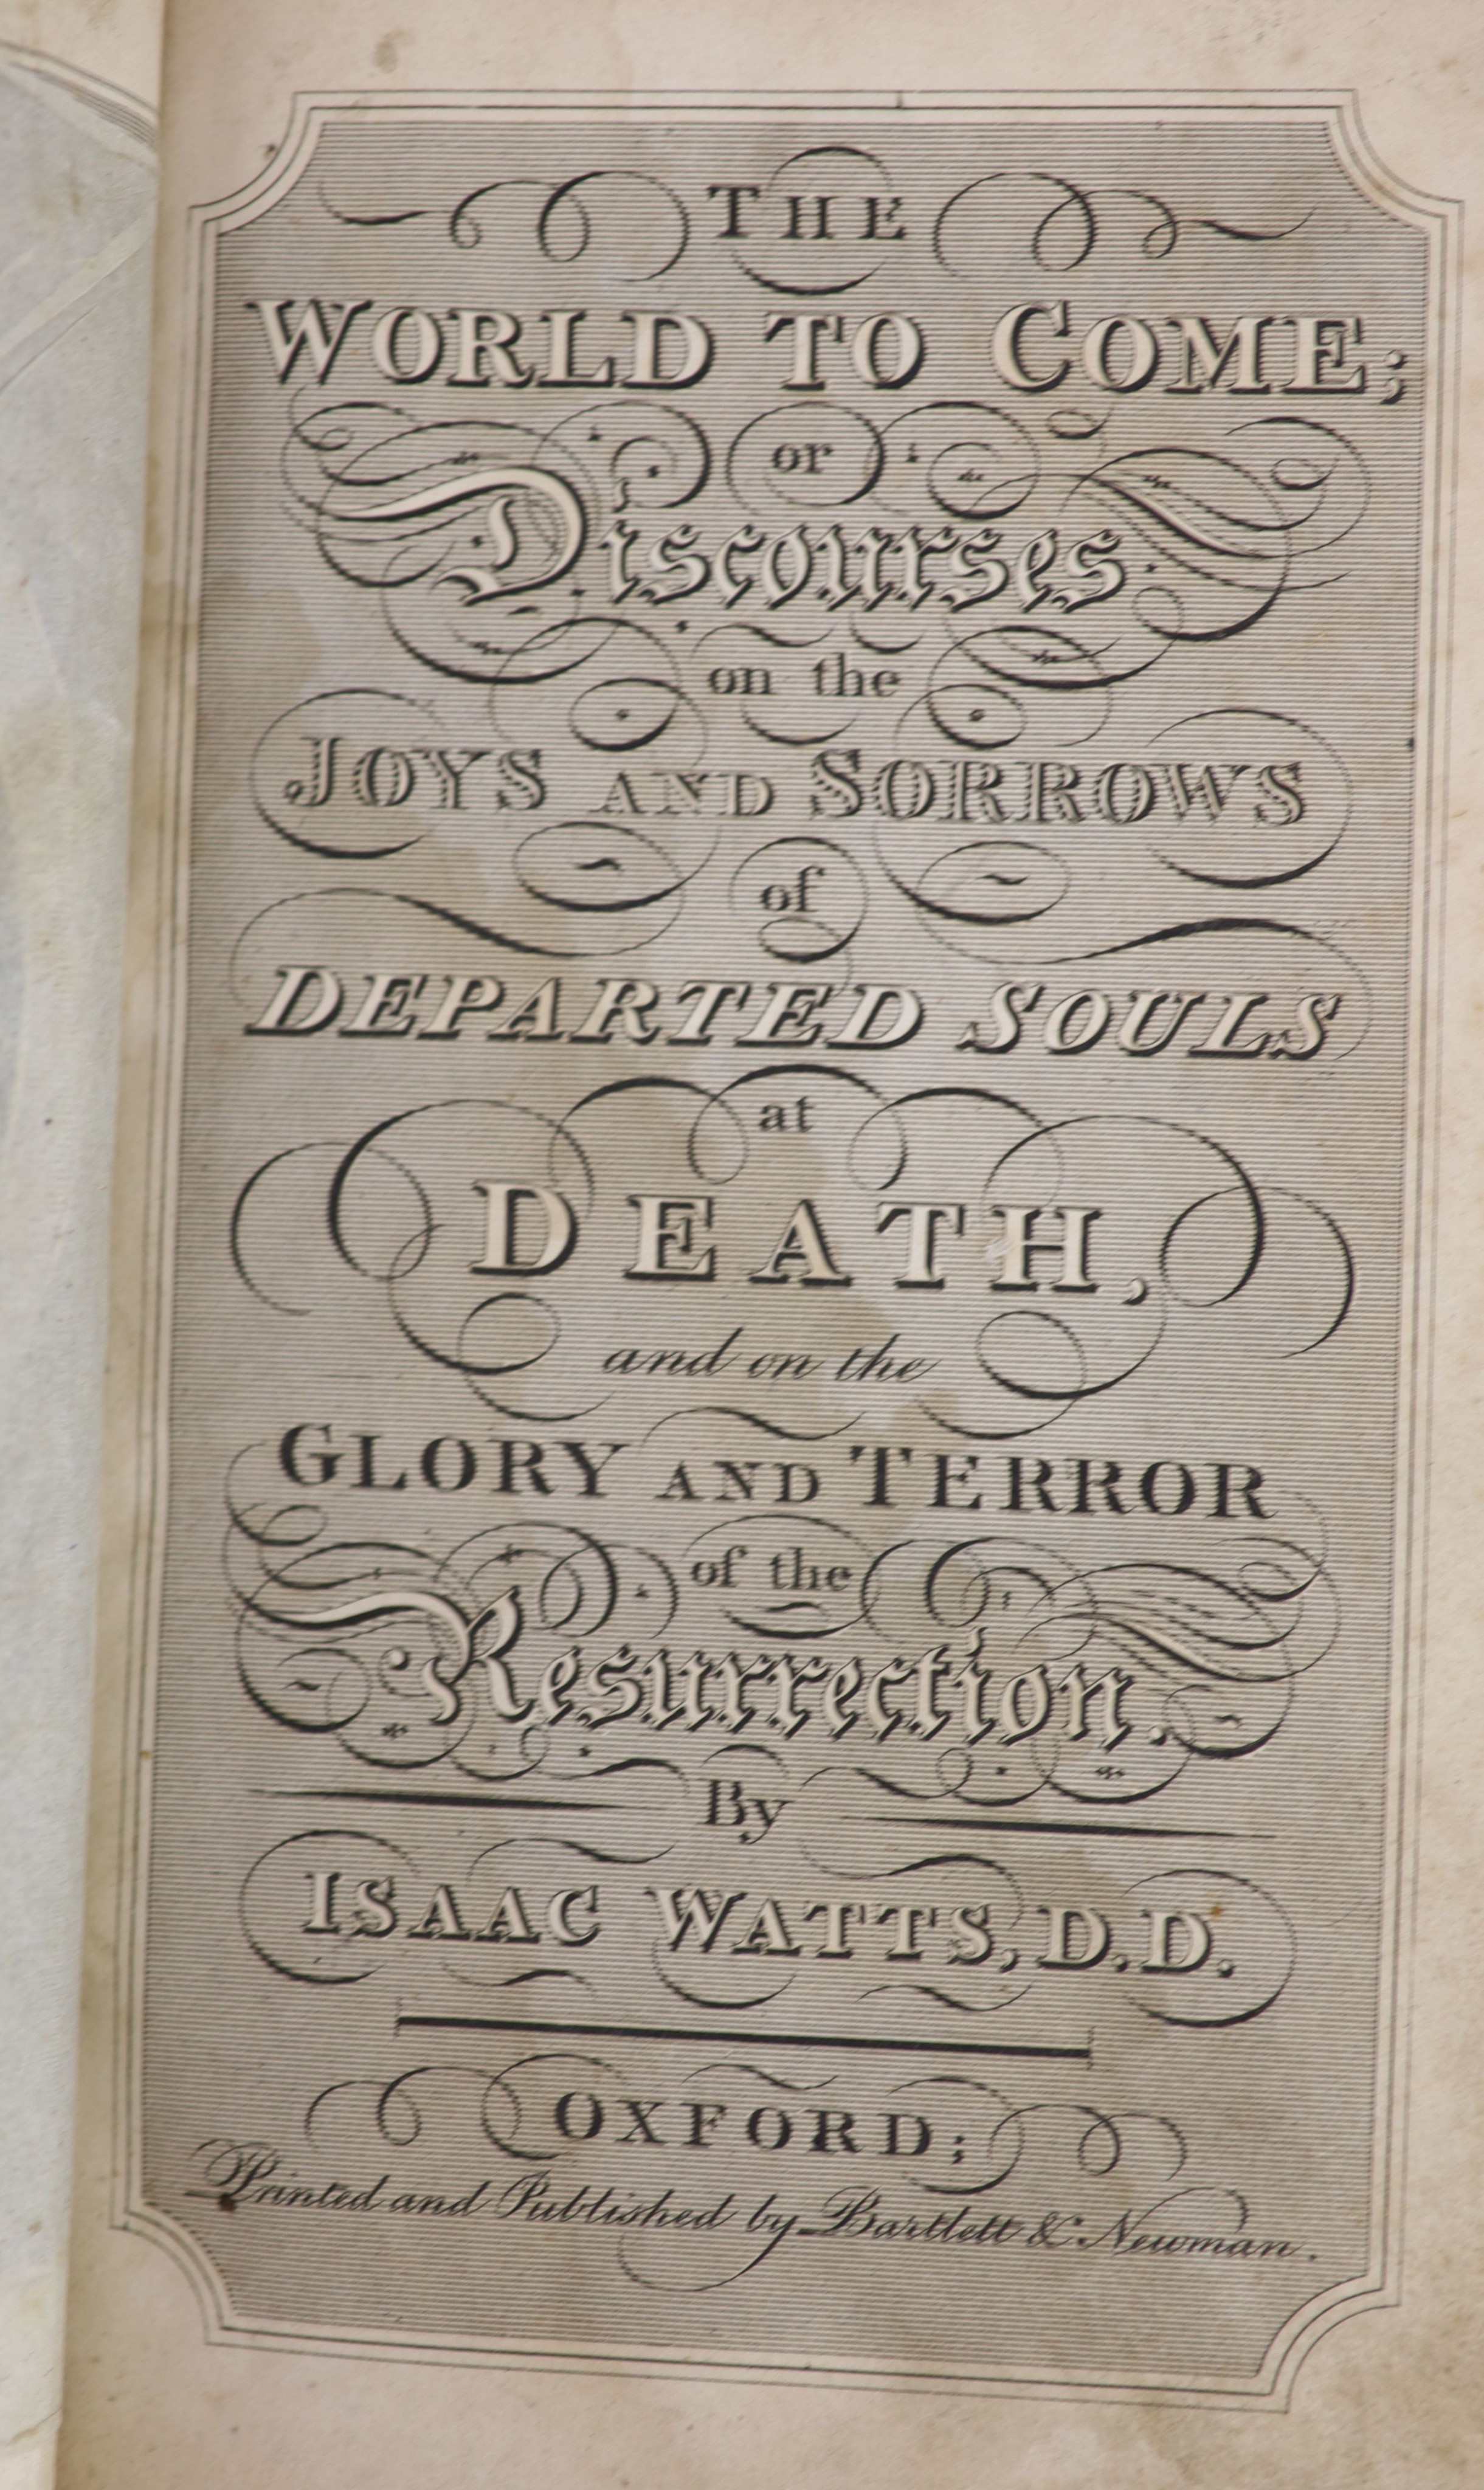 THE
WORLD TO COME;
or
Discourses
on the
JOYS AND SORROWS
of
DEPARTED SOULS
at
DEATH,
and on the
GLORY AND TERROR
of the
Resurrection.
By
ISAAC WATTS, D.D.
OXFORD;
Printed and Published by Bartlett & Newman.